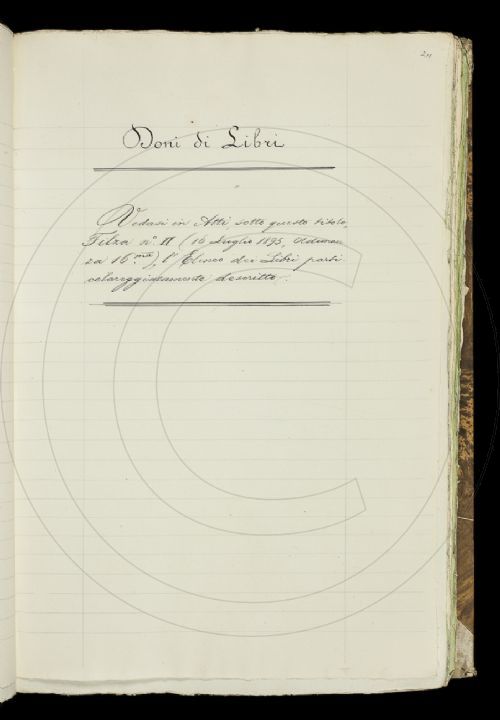 211
Doni di Libri
Vedasi in Atti, sotto questo titolo,
Filza n.º 11 (16 Luglio 1895, Adunan
za 16.ma), l'Elenco dei Libri
descritto.